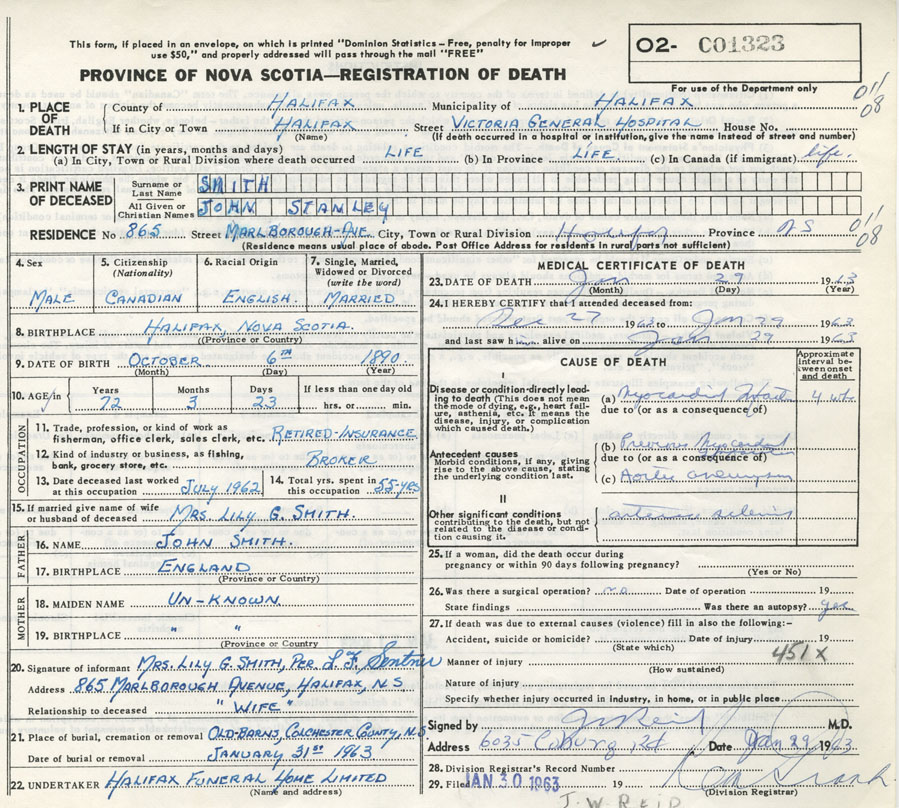 This form, if placed in an envelope, on which is printed "Dominion Statistics – Free, penalty for improper
use $50," and properly addressed will pass through the mail "FREE"
O2- C01323
For use of the Department only
PROVINCE OF NOVA SCOTIA—REGISTRATION OF DEATH
011
08
1. PLACE OF DEATH { County of HALIFAX Municipality of HALIFAX
If in City or Town HALIFAX (Name) Street VICTORIA GENERAL HOSPITAL House No.
(If death occurred in a hospital or institution, give the name instead of street and number)
2. LENGTH OF STAY (in years, months and days)
(a) In City, Town or Rural Division where death occurred LIFE (b) In Province LIFE (c) In Canada (if immigrant) life.
3. PRINT NAME OF DECEASED { Surname or Last Name SMITH
All Given or Christian Names JOHN STANLEY
RESIDENCE No 865 Street MARLBOROUGH-AVE. City, Town or Rural Division Halifax Province N S
011
08
(Residence means usual place of abode. Post Office Address for residents in rural parts not sufficient)
4. Sex
MALE
5. Citizenship
(Nationality)
CANADIAN
6. Racial Origin
ENGLISH.
7. Single, Married,
Widowed or Divorced
(write the word)
MARRIED
8. BIRTHPLACE HALIFAX, NOVA SCOTIA.
(Province or Country)
9. DATE OF BIRTH OCTOBER 6TH 1890
(Month) (Day) (Year)
10. AGE in Years 72 Months 3 Days 23 If less than one day old
hrs. or min.
OCCUPATION
11. Trade, profession, or kind of work as
fisherman, office clerk, sales clerk, etc. RETIRED-INSURANCE
12. Kind of industry or business, as fishing,
bank, grocery store, etc. BROKER
13. Date deceased last worked
at this occupation JULY 1962
14. Total yrs. spent in
this occupation 55-YRS
15. If married give name of wife
or husband of deceased MRS. LILY G. SMITH.
FATHER
16. NAME JOHN SMITH.
17. BIRTHPLACE ENGLAND
(Province or Country)
MOTHER
18. MAIDEN NAME UN-KNOWN
19. BIRTHPLACE " "
(Province or Country
20. Signature of informant MRS. LILY G. SMITH, PER L. F. Sentner
Address 865 MARLBOROUGH AVENUE, HALIFAX, N.S.
Relationship to deceased "WIFE"
21. Place of burial, cremation or removal OLD-BARNS, COLCHESTER COUNTY, N.S
Date of burial or removal JANUARY 31ST 1963
22. UNDERTAKER HALIFAX FUNERAL HOME LIMITED
(Name and address)
MEDICAL CERTIFICATE OF DEATH
23. DATE OF DEATH Jan 29 1963
(Month) (Day) (Year)
24. I HEREBY CERTIFY that I attended deceased from:
Dec 27 1962 to Jan 29 1963
and last saw him alive on Jan 29 1963
CAUSE OF DEATH
Approximate
interval be-
tween onset
and death
I
Disease or condition directly lead-
ing to death (This does not mean
the mode of dying, e.g., heart fail-
ure, asthenia, etc. It means the
disease, injury, or complication
which caused death.)
(a) Myocardial Infarct 4 wks
due to (or as a consequence of)
Antecedent causes
Morbid conditions, if any, giving
rise to the above cause, stating
the underlying condition last.
(b) Previous Myocardial
due to (or as a consequence of)
(c) Aortic aneurysm
II
Other significant conditions
contributing to the death, but not
related to the disease or condi-
tion causing it.
25. If a woman, did the death occur during
pregnancy or within 90 days following pregnancy?
(Yes or No)
26. Was there a surgical operation? no Date of operation 19
State findings Was there an autopsy? yes
27. If death was due to external causes (violence) fill in also the following:-
Accident, suicide or homicide? Date of injury 19
(State which)
451 X
Manner of injury
(How sustained)
Nature of injury
Specify whether injury occurred in industry, in home, or in public place
Signed by J W Reid M.D.
Address 6035 Coburg Rd Date Jan 29 1963
28. Division Registrar's Record Number
29. Filed JAN 30 1963 19
(Division Registrar)
J. W. REID